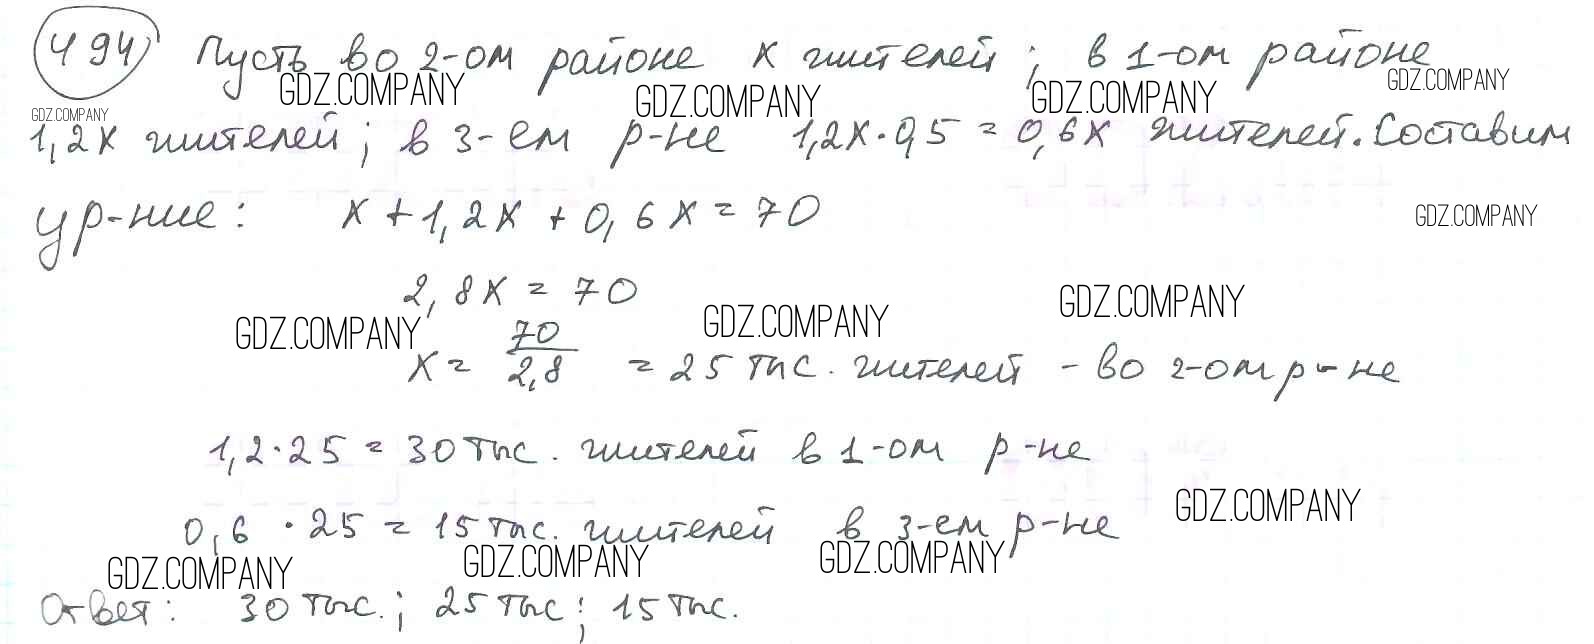 494 Пусть во 2-ом районе x жителей; в 1-ом районе
GDZ.COMPANY GDZ.COMPANY GDZ.COMPANY GDZ.COMPANY
GDZ.COMPANY
1,2x жителей; в 3-ем р-не 1,2x·0,5 = 0,6x жителей. Составим
ур-ние: x + 1,2x + 0,6x = 70
GDZ.COMPANY
2,8x = 70
GDZ.COMPANY GDZ.COMPANY GDZ.COMPANY
x = 70/2,8 = 25 тыс. жителей - во 2-ом р-не
1,2·25 = 30 тыс. жителей в 1-ом р-не
GDZ.COMPANY
0,6 · 25 = 15 тыс. жителей в 3-ем р-не
GDZ.COMPANY GDZ.COMPANY GDZ.COMPANY
Ответ: 30 тыс.; 25 тыс; 15 тыс.